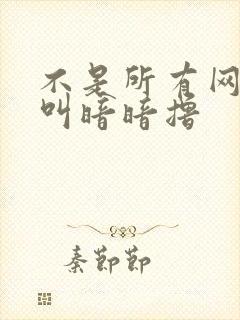 不是所有网
叫暗暗撸
秦節節